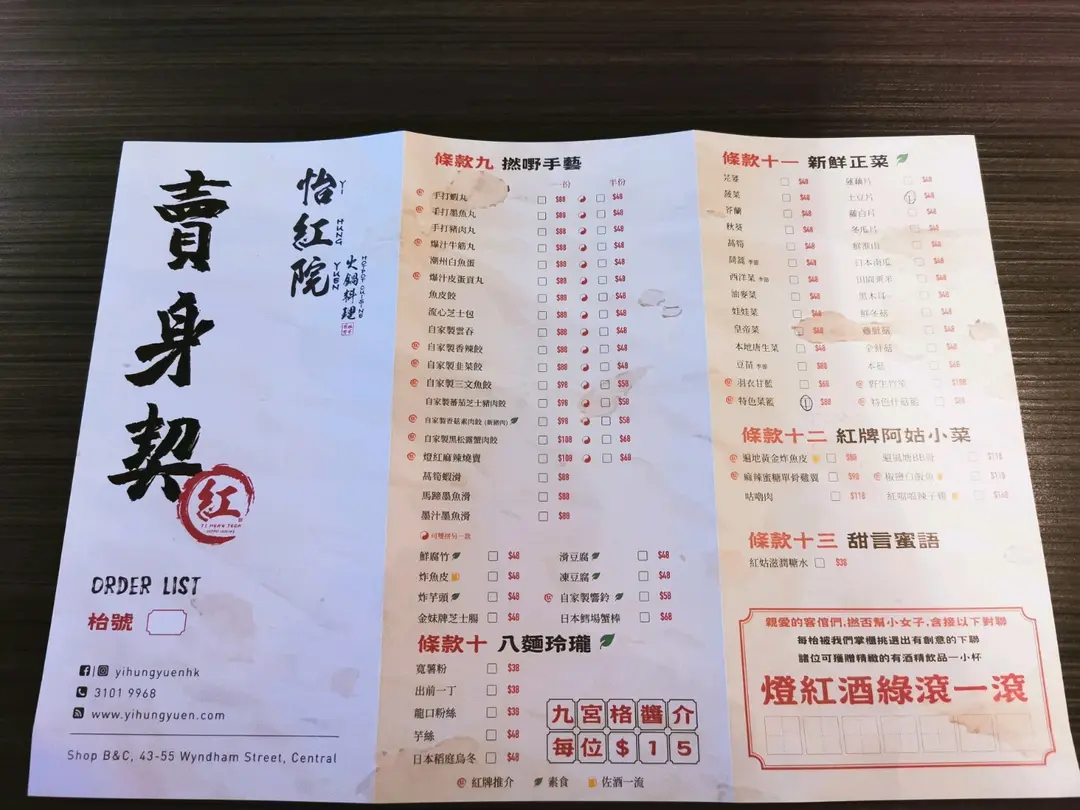 賣身契
怡紅院
YI HUNG YUEN
火鍋料理
HOTPOT CUISINE
紅
YI HUNG YUEN
ORDER LIST
枱號
yihungyuenhk
3101 9968
www.yihungyuen.com
Shop B&C, 43-55 Wyndham Street, Central
條款九 撚嘢手藝
一份 半份
手打蝦丸 $88 $48
手打墨魚丸 $88 $48
手打豬肉丸 $88 $48
爆汁牛筋丸 $88 $48
潮州白魚蛋 $88 $48
爆汁皮蛋貢丸 $88 $48
魚皮餃 $88 $48
流心芝士包 $88 $48
自家製雲吞 $88 $48
自家製香辣餃 $88 $48
自家製韭菜餃 $88 $48
自家製三文魚餃 $98 $58
自家製蕃茄芝士豬肉餃 $98 $58
自家製香菇素肉餃 (新豬肉) $98 $58
自家製黑松露蟹肉餃 $108 $68
燈紅麻辣燒賣 $108 $68
萵筍蝦滑 $88
馬蹄墨魚滑 $88
墨汁墨魚滑 $88
可雙拼另一款
鮮腐竹 $48 滑豆腐 $48
炸魚皮 $48 凍豆腐 $48
炸芋頭 $48 自家製響鈴 $58
金妹牌芝士腸 $48 日本鱈場蟹棒 $68
條款十 八麵玲瓏
寬薯粉 $38
出前一丁 $38
龍口粉絲 $38
芋絲 $48
日本稻庭烏冬 $48
九宮格醬介
每位$15
紅牌推介 素食 佐酒一流
條款十一 新鮮正菜
芫荽 $48 蓮藕片 $48
菠菜 $48 土豆片 $48
芥蘭 $48 蘿白片 $48
秋葵 $48 冬瓜片 $48
萵筍 $48 鮮淮山 $48
茼蒿 季節 $48 日本南瓜 $48
西洋菜 季節 $48 田園粟米 $48
油麥菜 $48 黑木耳 $48
娃娃菜 $48 鮮冬菇 $48
皇帝菜 $48 $48
本地唐生菜 $48 $48
豆苗 季節 $58 $68
羽衣甘藍 $68 野生竹笙 $108
特色菜籃 $88 特色什菇籃 $88
條款十二 紅牌阿姑小菜
遍地黃金炸魚皮 $88 避風塘BB $118
麻辣蜜糖單骨雞翼 $98 椒鹽白飯魚 $118
咕嚕肉 $118 紅噹噹辣子雞 $148
條款十三 甜言蜜語
紅姑滋潤糖水 $38
親愛的客信們,撚否幫小女子,含接以下對聯
每枱被我們掌櫃挑選出有創意的下聯
諸位可獲贈精緻的有酒精飲品一小杯
燈紅酒綠滾一滾